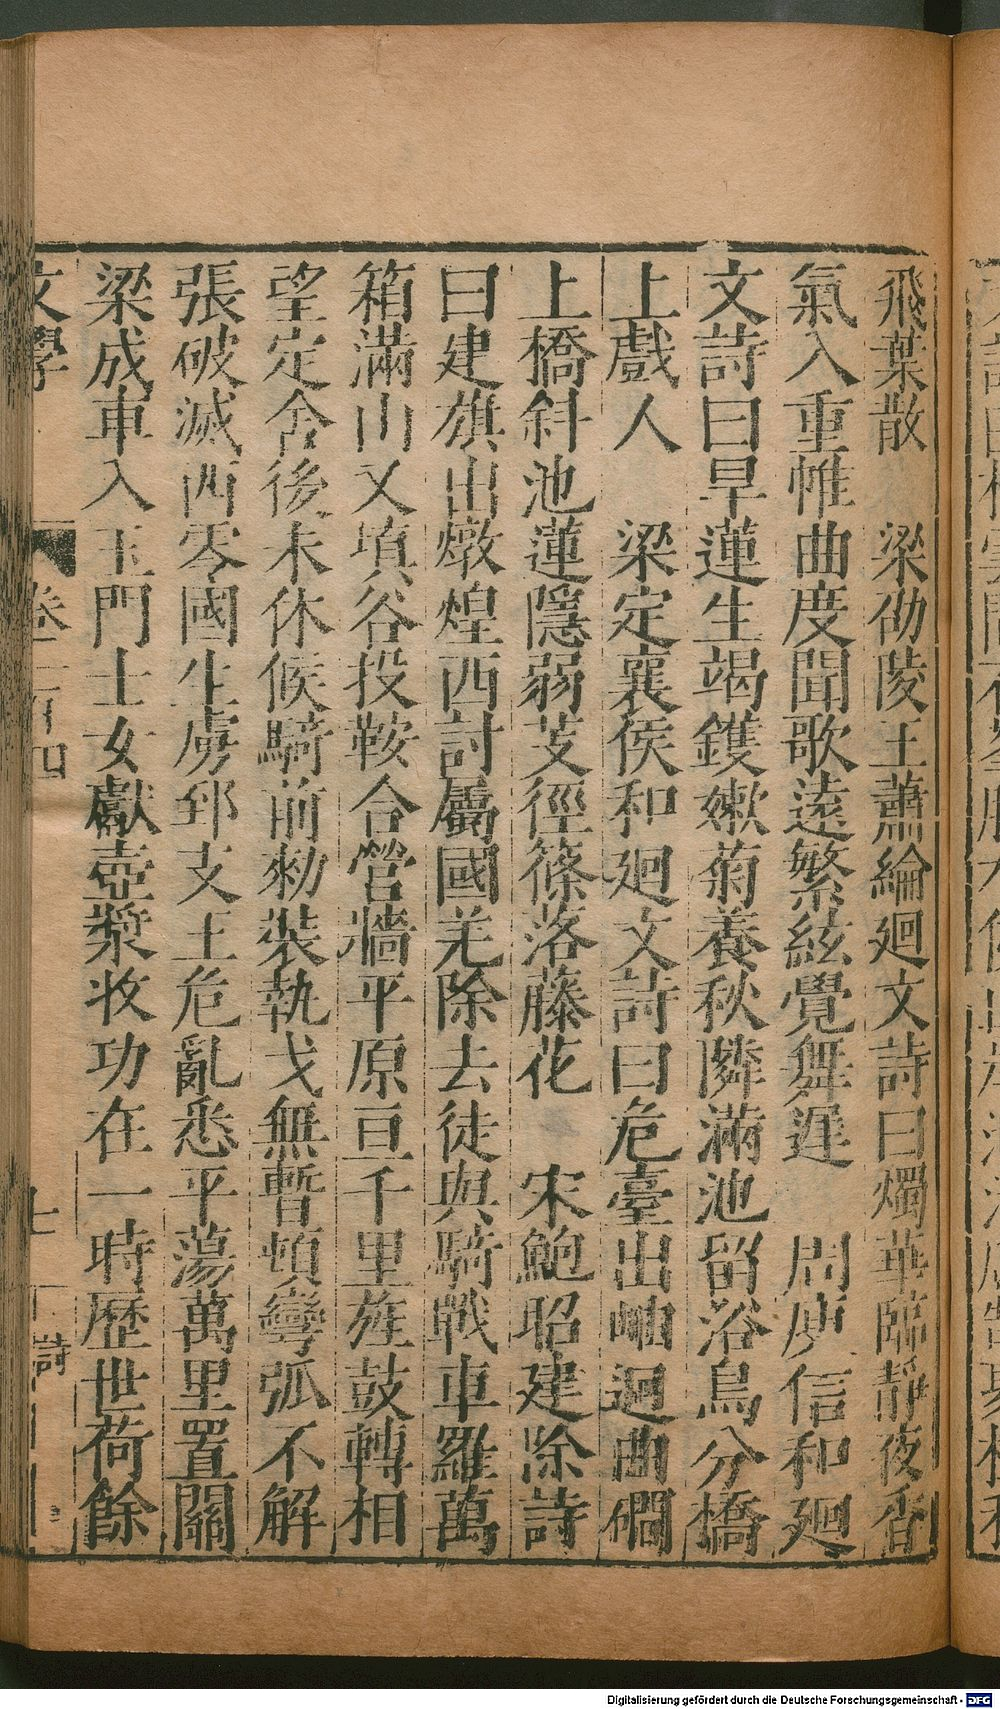 飛葉散　梁邵陵王蕭綸廻文詩曰燭華臨靜夜香
氣入重帷曲度聞歌遠繁絃覺舞遲　周庾信和廻
文詩曰早蓮生竭鑊嫰菊養秋隣滿池留浴鳥分橋
上戲人　梁定襄侯和廻文詩曰危臺出岫迥曲磵
上橋斜池蓮隱弱芰徑篠落藤花　宋鮑昭建除詩
曰建旗出燉煌西討屬國羌除去徒與騎戰車羅萬
箱滿山又塡谷投鞍合營牆平原亘千里旌鼓轉相
望定舍後未休候騎前勑裝執戈無暫頓彎弧不解
張破滅西零國生虜郅支王危亂悉平蕩萬里置關
梁成車入玉門士女獻壺漿收功在一時歷世荷餘
文學　卷　　四　七　詩
Digitalisierung gefördert durch die Deutsche Forschungsgemeinschaft - DFG